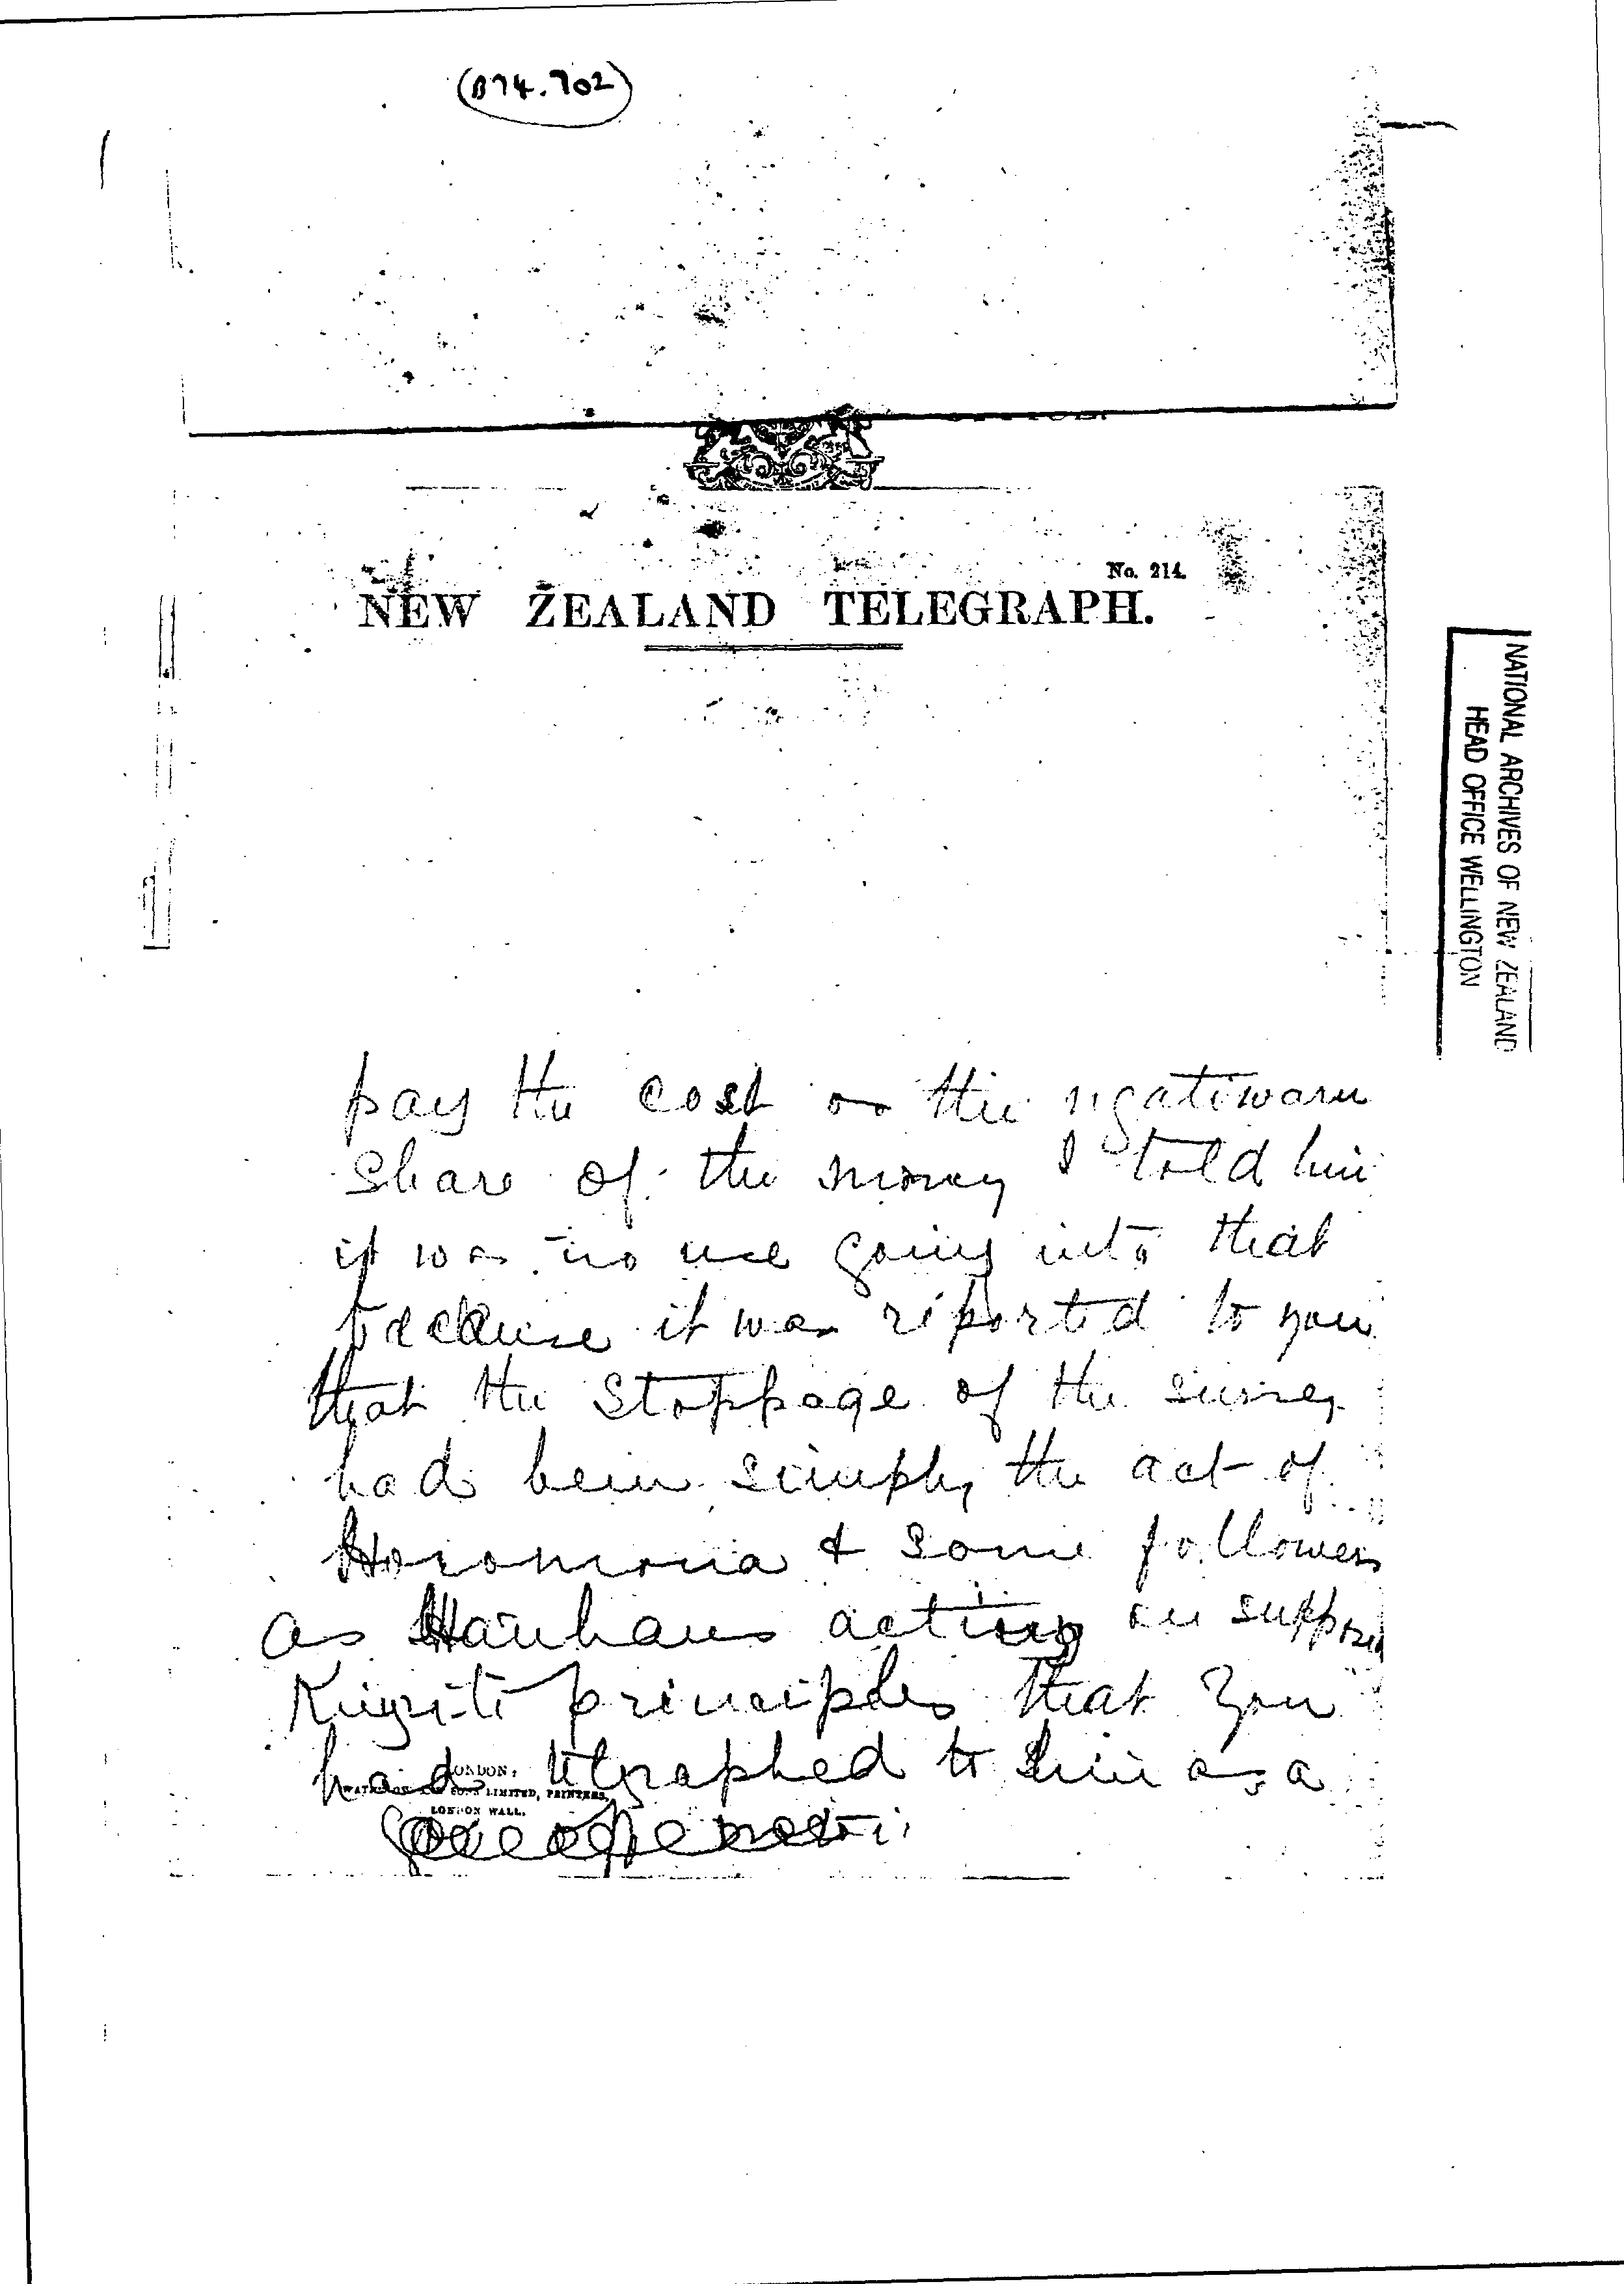 (B74.702)
No. 214.
NEW ZEALAND TELEGRAPH.
NATIONAL ARCHIVES OF NEW ZEALAND
HEAD OFFICE WELLINGTON
pay the cost on the ngatiwaru
share of the money I told him
it was no use going into that
because it was reported to you
that the stoppage of the survey
had been simply the act of
Horomona & some followers
as Hauhaus acting on supposed
Kingite principles that you
had telegraphed to him as a
LONDON:
SONS LIMITED, PRINTERS,
LONDON WALL.